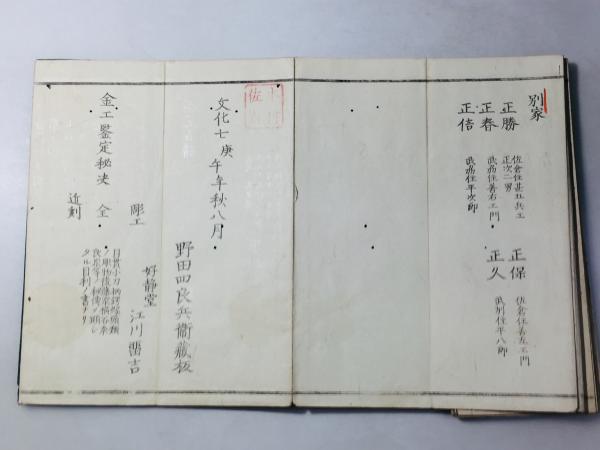 別家
正勝
佐倉住甚五兵エ
正次二男
正春
武州住善右エ門
正佶
武州住平次郎
正保
佐倉住善左エ門
正久
武州住平八郎
文化七庚午年秋八月
野田四良兵衛蔵板
彫工
好静堂
江川富吉
金工鑒定秘决 全
近刻
目貫小刀柄鍔縁頭類
タル目利ノ書ナリ